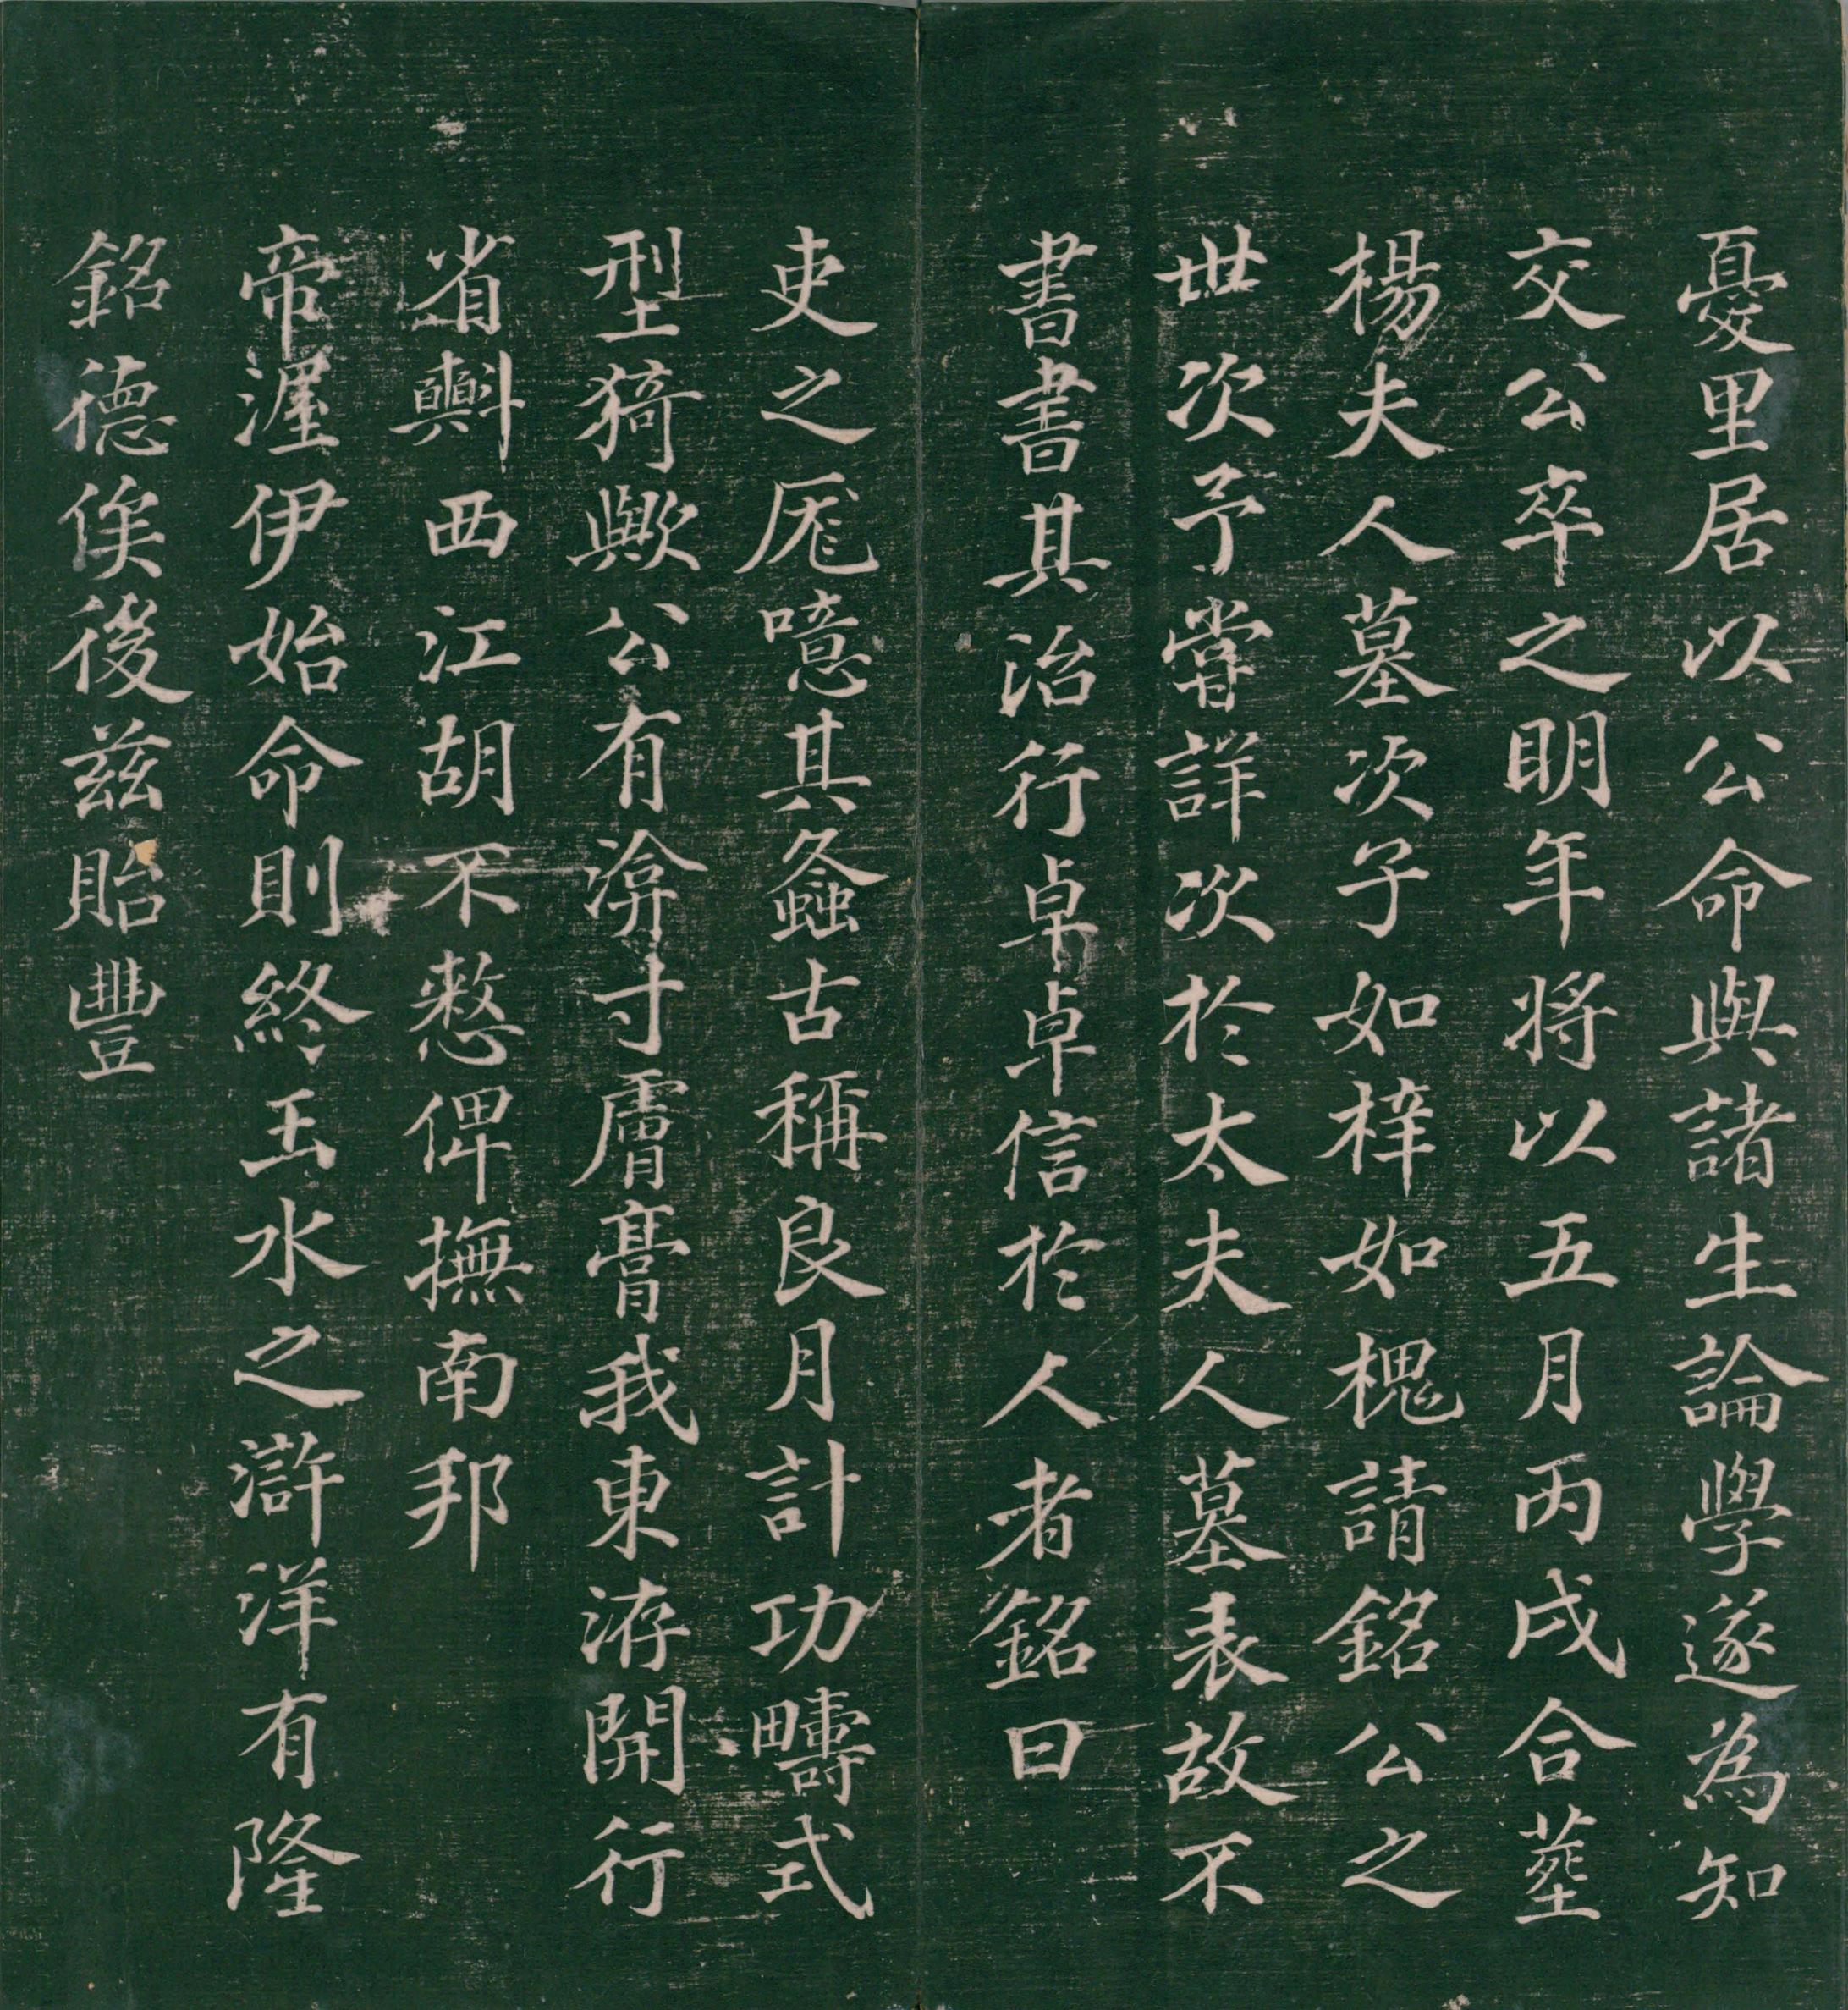 憂里居以公命與諸生論學遂為知
交公卒之明年將以五月丙戌合塟
楊夫人墓次子如梓如槐請銘公之
世次予嘗詳次於太夫人墓表故不
書書其治行卓卓信於人者銘曰
吏之厖噫其螽古稱良月計功疇式
型猗歟公有渰寸膚膏我東洊開行
省㪺西江胡不憗俾撫南邦
帝渥伊始命則終玉水之滸洋有隆
銘德俟後茲貽豐